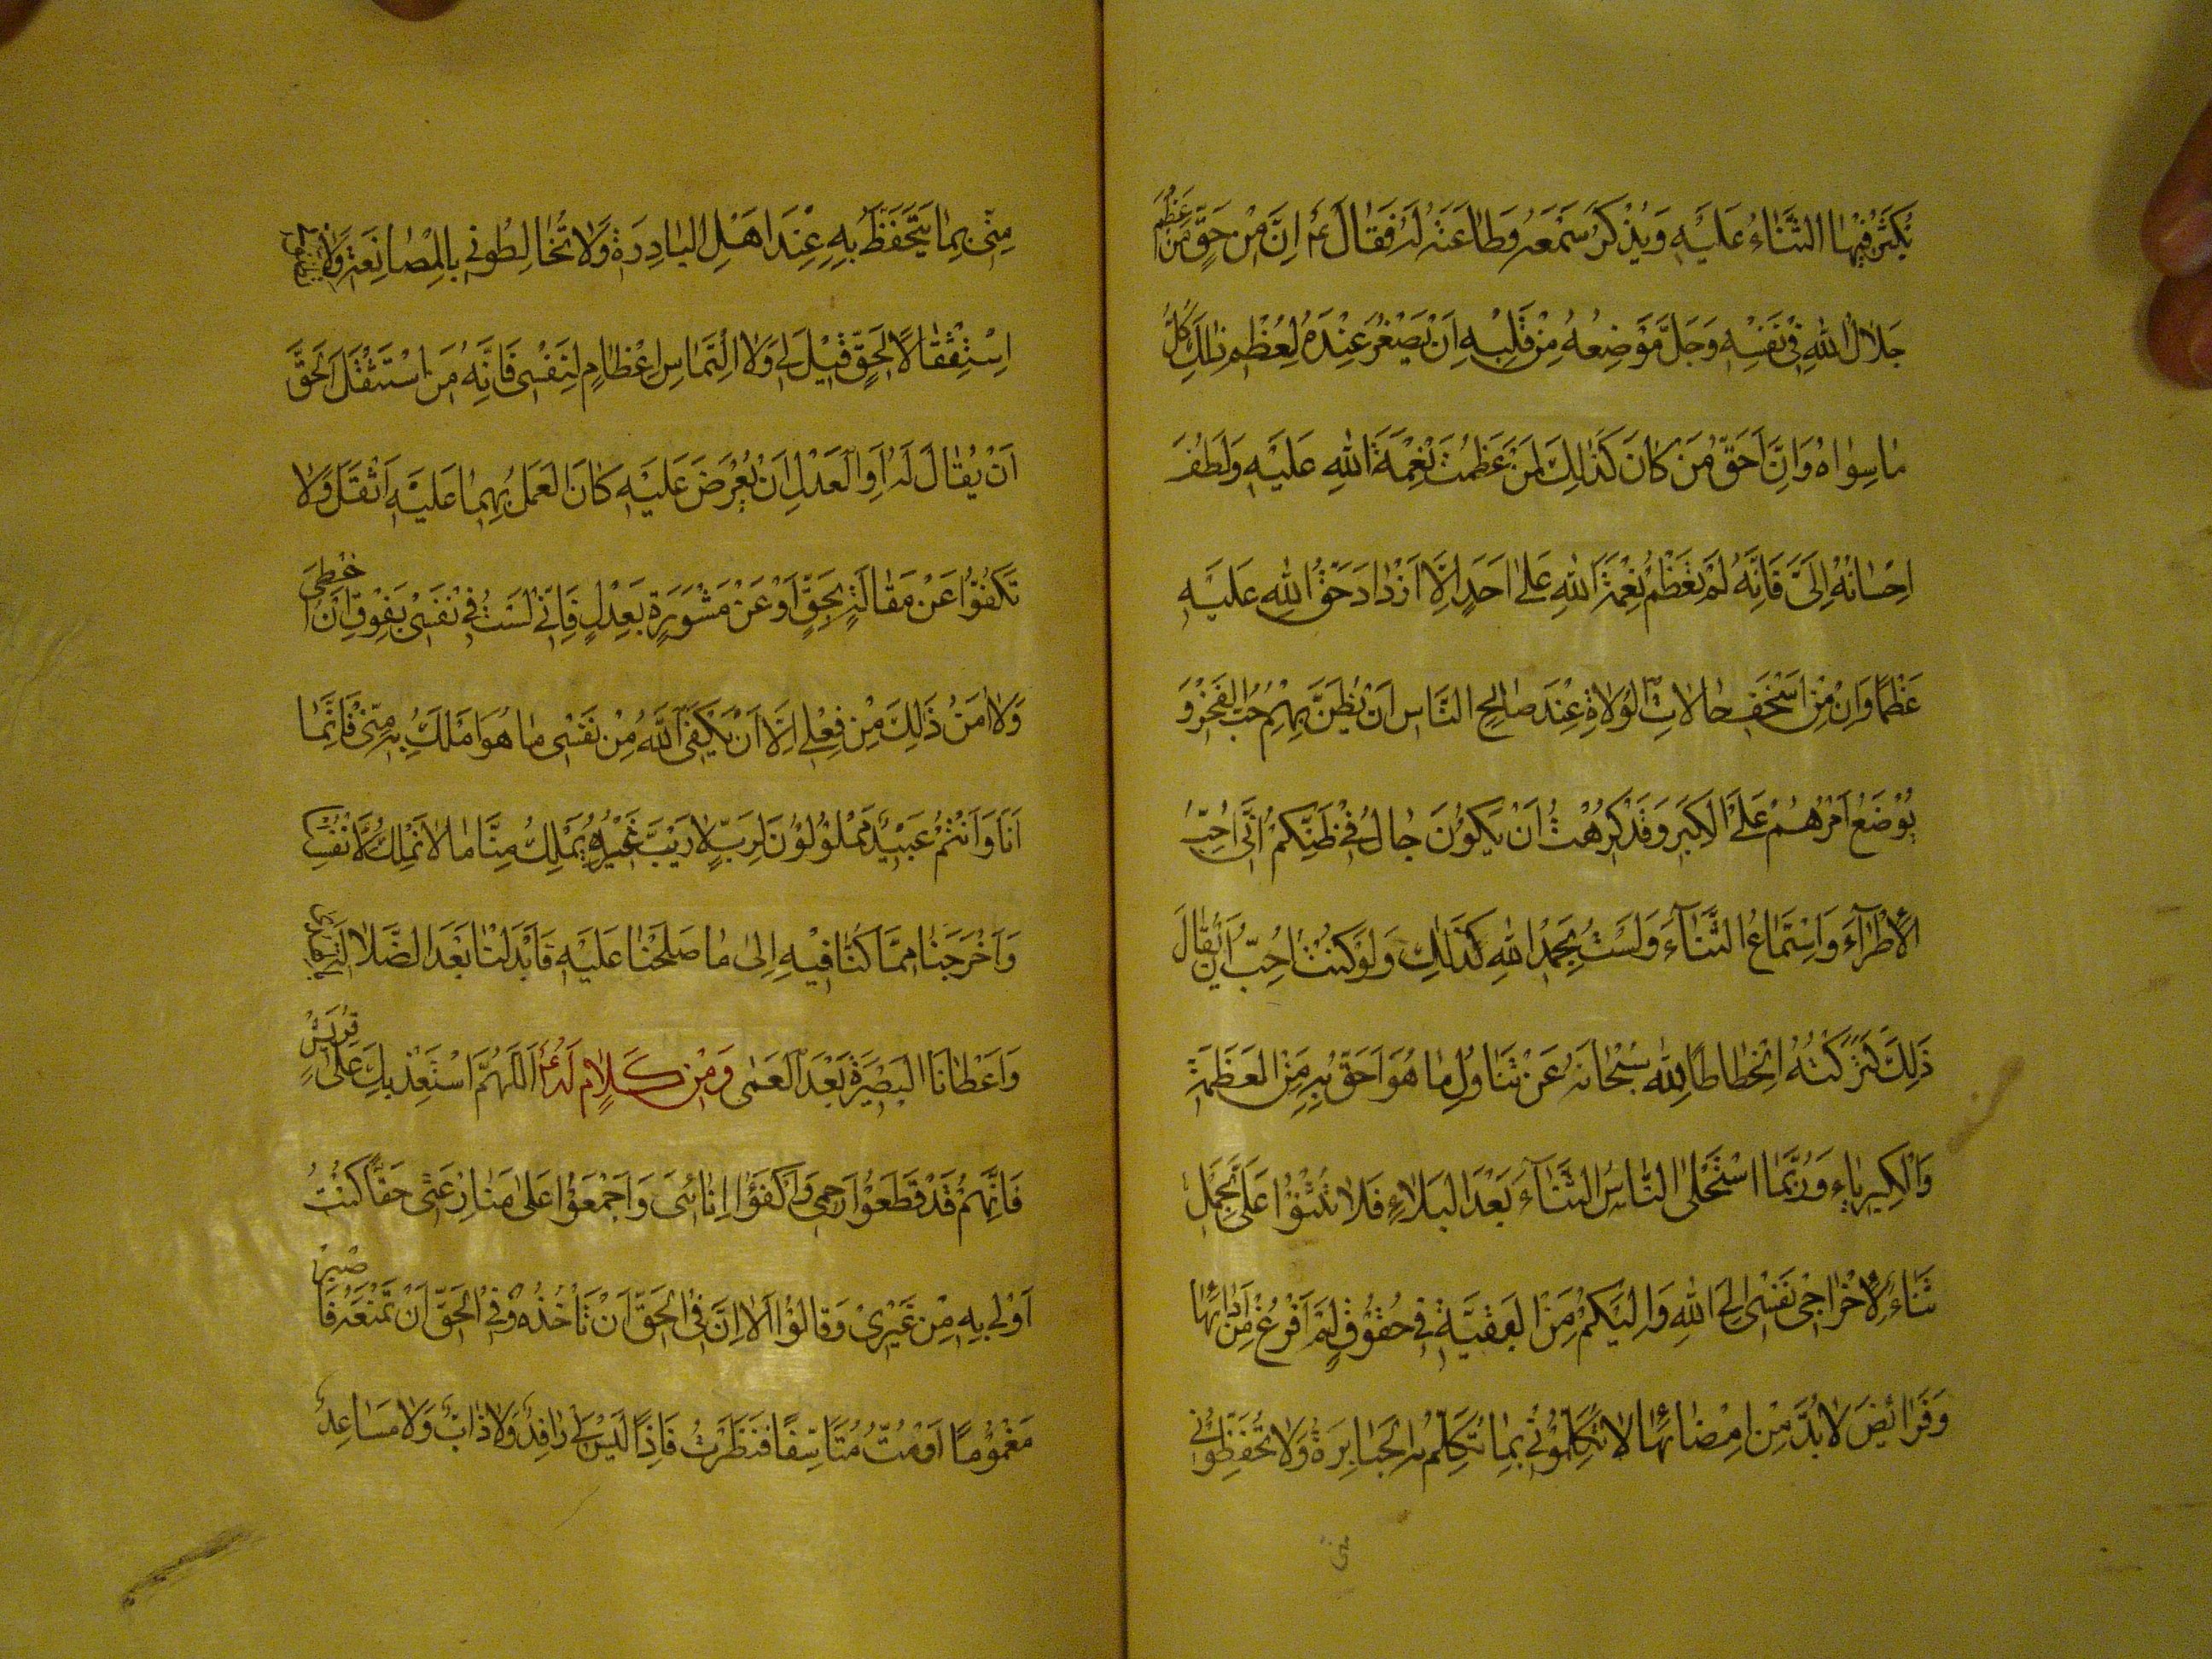 يُكْثِرُ فِيهَا الثَّنَاءَ عَلَيْهِ وَيَذْكُرُ سَمْعَهُ وَطَاعَتَهُ لَهُ فَقَالَ ع اِنَّ مِنْ حَقِّ مَنْ عَظُمَ
جَلَالُ اللهِ فِي نَفْسِهِ وَجَلَّ مَوْضِعُهُ مِنْ قَلْبِهِ اَنْ يَصْغُرَ عِنْدَهُ لِعُظْمِ ذٰلِكَ كُلُّ
مَا سِوَاهُ وَاِنَّ اَحَقَّ مَنْ كَانَ كَذٰلِكَ لَمَنْ عَظُمَتْ نِعْمَةُ اللهِ عَلَيْهِ وَلَطُفَ
اِحْسَانُهُ اِلَيْهِ فَاِنَّهُ لَمْ تَعْظُمْ نِعْمَةُ اللهِ عَلٰى اَحَدٍ اِلَّا ازْدَادَ حَقُّ اللهِ عَلَيْهِ
عِظَمًا وَاِنَّ مِنْ اَسْخَفِ حَالَاتِ الْوُلَاةِ عِنْدَ صَالِحِ النَّاسِ اَنْ يُظَنَّ بِهِمْ حُبُّ الْفَخْرِ وَ
يُوْضَعَ اَمْرُهُمْ عَلَى الْكِبْرِ وَقَدْ كَرِهْتُ اَنْ يَكُوْنَ جَالَ فِي ظَنِّكُمْ اَنِّي اُحِبُّ
الْاِطْرَآءَ وَاسْتِمَاعَ الثَّنَآءِ وَلَسْتُ بِحَمْدِ اللهِ كَذٰلِكَ وَلَوْ كُنْتُ اُحِبُّ اَنْ يُقَالَ
ذَلِكَ لَتَرَكْتُهُ انْحِطَاطًا لِلّٰهِ سُبْحَانَهُ عَنْ تَنَاوُلِ مَا هُوَ اَحَقُّ بِهِ مِنَ الْعَظَمَةِ
وَالْكِبْرِيَاءِ وَرُبَّمَا اسْتَحْلَى النَّاسُ الثَّنَآءَ بَعْدَ الْبَلَاءِ فَلَا تُثْنُوْا عَلَيَّ بِجَمِيْلِ
ثَنَاءٍ لِاِخْرَاجِي نَفْسِي اِلَى اللهِ وَاِلَيْكُمْ مِنَ الْبَقِيَّةِ فِي حُقُوْقٍ لَمْ اَفْرُغْ مِنْ اَدَائِهَا
وَفَرَائِضَ لَابُدَّ مِنْ اِمْضَائِهَا لَا تُكَلِّمُوْنِي بِمَا تُكَلَّمُ بِهِ الْجَبَابِرَةُ وَلَا تَحَفَّظُوْا
مِنِّي بِمَا يُتَحَفَّظُ بِهِ عِنْدَ اَهْلِ الْبَادِرَةِ وَلَا تُخَالِطُوْنِي بِالْمُصَانَعَةِ وَلَا تَظُنُّوا بِي
اسْتِثْقَالًا لِحَقٍّ قِيْلَ لِي وَلَا الْتِمَاسَ اِعْظَامٍ لِنَفْسِي فَاِنَّهُ مَنِ اسْتَثْقَلَ الْحَقَّ
اَنْ يُقَالَ لَهُ اَوِ الْعَدْلَ اَنْ يُعْرَضَ عَلَيْهِ كَانَ الْعَمَلُ بِهِمَا عَلَيْهِ اَثْقَلَ وَلَا
تَكُفُّوْا عَنْ مَقَالَةٍ بِحَقٍّ اَوْ عَنْ مَشْوَرَةٍ بِعَدْلٍ فَاِنِّي لَسْتُ فِي نَفْسِي بِفَوْقِ اَنْ اُخْطِئَ
وَلَا اٰمَنُ ذَلِكَ مِنْ فِعْلِي اِلَّا اَنْ يَكْفِيَ اللهُ مِنْ نَفْسِي مَا هُوَ اَمْلَكُ بِهِ مِنِّي فَاِنَّمَا
اَنَا وَاَنْتُمْ عَبِيْدٌ مَمْلُوْكُوْنَ لِرَبٍّ لَا رَبَّ غَيْرُهُ يَمْلِكُ مِنَّا مَا لَا نَمْلِكُ مِنْ اَنْفُسِنَا
وَاَخْرَجَنَا مِمَّا كُنَّا فِيْهِ اِلٰى مَا صَلَحْنَا عَلَيْهِ فَاَبْدَلَنَا بَعْدَ الضَّلَالَةِ بِالْهُدٰى
وَاَعْطَانَا الْبَصِيْرَةَ بَعْدَ الْعَمٰى وَمِنْ كَلَامٍ لَهُ ع اَللّٰهُمَّ اِنِّي اَسْتَعْدِيْكَ عَلٰى قُرَيْشٍ
فَاِنَّهُمْ قَدْ قَطَعُوْا رَحِمِي وَاَكْفَؤُا اِنَائِي وَاَجْمَعُوْا عَلٰى مُنَازَعَتِي حَقًّا كُنْتُ
اَوْلٰى بِهِ مِنْ غَيْرِيْ وَقَالُوْا اَلَا اِنَّ فِي الْحَقِّ اَنْ تَاْخُذَهُ وَفِي الْحَقِّ اَنْ تُمْنَعَهُ فَاصْبِرْ
مَغْمُوْمًا اَوْ مُتْ مُتَاَسِّفًا فَنَظَرْتُ فَاِذَا لَيْسَ لِي رَافِدٌ وَلَا ذَابٌّ وَلَا مُسَاعِدٌ